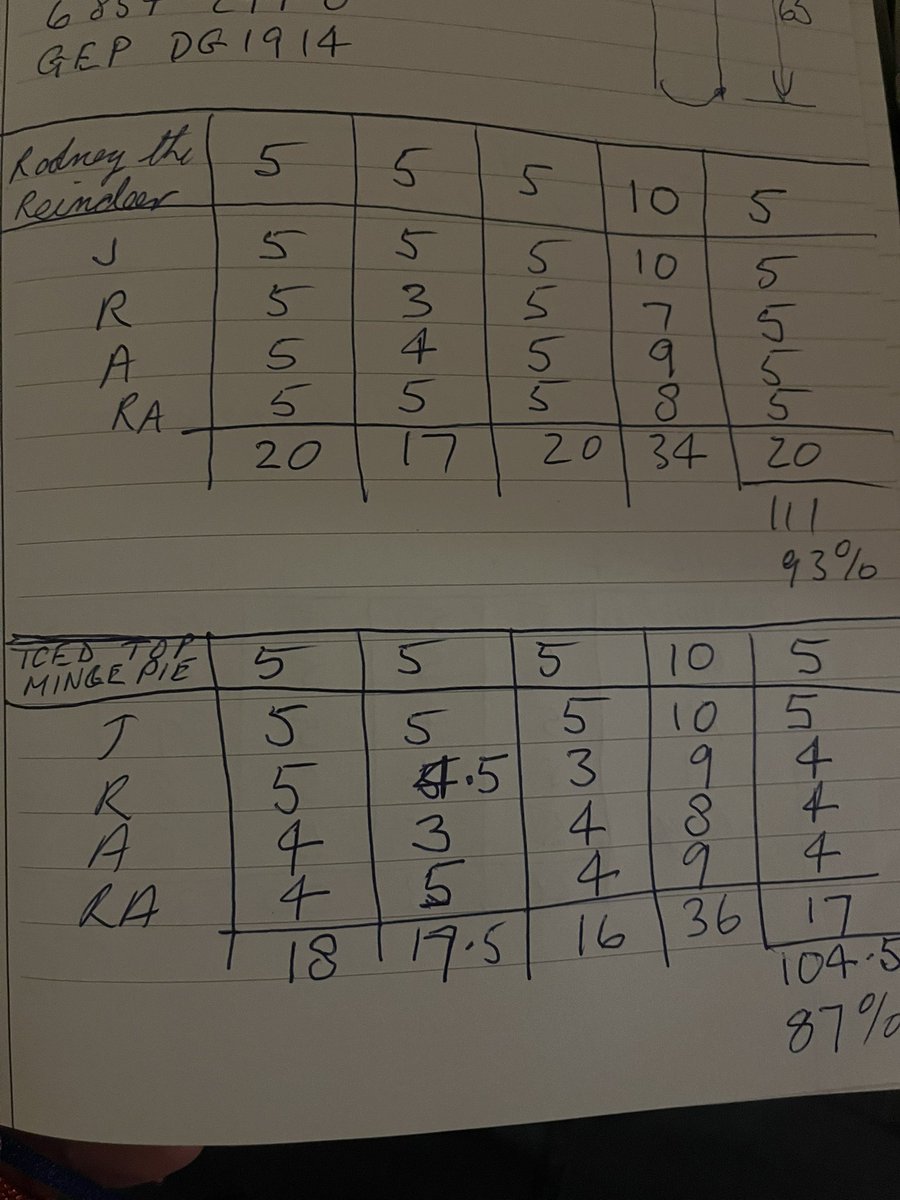 GEP DG1914
65
Rodney the Reindeer 5 5 5 10 5
J 5 5 5 10 5
R 5 3 5 7 5
A 5 4 5 9 5
RA 5 5 5 8 5
20 17 20 34 20
111
93%
ICED TOP MINCE PIE 5 5 5 10 5
J 5 5 5 10 5
R 5 4.5 3 9 4
A 4 3 4 8 4
RA 4 5 4 9 4
18 17.5 16 36 17
104.5
87%